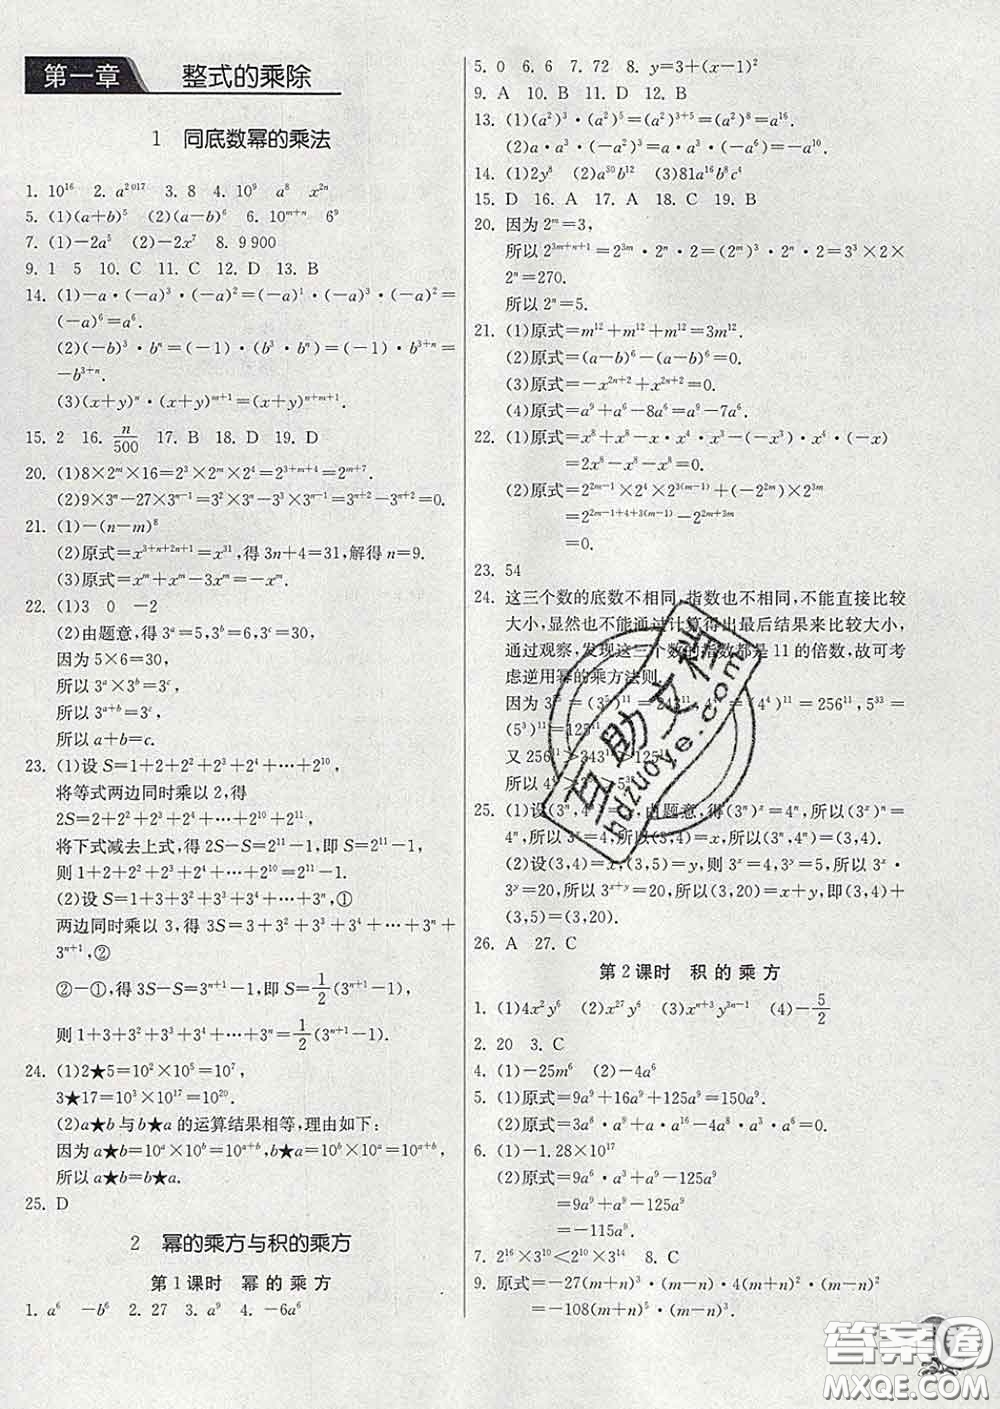 第一章 整式的乘除
1 同底数幂的乘法
1. 10¹⁶ 2. a²⁰¹⁷ 3. 8 4. 10⁹ a⁸ x²ⁿ
5. (1)(a+b)⁵ (2)(a−b)⁶ 6. 10ᵐ⁺ⁿ 6⁹
7. (1)−2a⁵ (2)−2x⁷ 8. 9 900
9. 1 5 10. C 11. C 12. D 13. B
14. (1)−a·(−a)³·(−a)²=(−a)¹·(−a)³·(−a)²=
(−a)⁶=a⁶.
(2)(−b)³·bⁿ=(−1)·(b³·bⁿ)=(−1)·b³⁺ⁿ=
−b³⁺ⁿ.
(3)(x+y)ⁿ·(x+y)ᵐ⁺¹=(x+y)ⁿ⁺ᵐ⁺¹.
15. 2 16. n/500 17. B 18. D 19. D
20. (1)8×2ᵐ×16=2³×2ᵐ×2⁴=2³⁺ᵐ⁺⁴=2ᵐ⁺⁷.
(2)9×3ⁿ−27×3ⁿ⁻¹=3²×3ⁿ−3³×3ⁿ⁻¹=3ⁿ⁺²−3ⁿ⁺²=0.
21. (1)−(n−m)⁸
(2)原式=x³⁺ⁿ⁺²ⁿ⁺¹=x³¹,得 3n+4=31,解得 n=9.
(3)原式=xᵐ+xᵐ−3xᵐ=−xᵐ.
22. (1)3 0 −2
(2)由题意,得 3ᵃ=5,3ᵇ=6,3ᶜ=30,
因为 5×6=30,
所以 3ᵃ×3ᵇ=3ᶜ,
所以 3ᵃ⁺ᵇ=3ᶜ,
所以 a+b=c.
23. (1)设 S=1+2+2²+2³+2⁴+…+2¹⁰,
将等式两边同时乘以 2,得
2S=2+2²+2³+2⁴+…+2¹⁰+2¹¹,
将下式减去上式,得 2S−S=2¹¹−1,即 S=2¹¹−1,
则 1+2+2²+2³+2⁴+…+2¹⁰=2¹¹−1.
(2)设 S=1+3+3²+3³+3⁴+…+3ⁿ,①
两边同时乘以 3,得 3S=3+3²+3³+3⁴+…+3ⁿ+
3ⁿ⁺¹,②
②−①,得 3S−S=3ⁿ⁺¹−1,即 S=1/2(3ⁿ⁺¹−1),
则 1+3+3²+3³+3⁴+…+3ⁿ=1/2(3ⁿ⁺¹−1).
24. (1)2★5=10²×10⁵=10⁷,
3★17=10³×10¹⁷=10²⁰.
(2)a★b 与 b★a 的运算结果相等,理由如下:
因为 a★b=10ᵃ×10ᵇ=10ᵃ⁺ᵇ,b★a=10ᵇ×10ᵃ=10ᵃ⁺ᵇ,
所以 a★b=b★a.
25. D
2 幂的乘方与积的乘方
第1课时 幂的乘方
1. a⁶ −b⁶ 2. 27 3. a⁹ 4. −6a⁶
5. 0 6. 6 7. 72 8. y=3+(x−1)²
9. A 10. B 11. D 12. B
13. (1)(a²)³·(a²)⁵=(a²)³⁺⁵=(a²)⁸=a¹⁶.
(2)a·a³·(−a²)³=a·a³·(−a⁶)=−a¹⁰.
14. (1)2y⁸ (2)a³⁰b¹² (3)81a¹⁶b⁸c⁴
15. D 16. A 17. A 18. C 19. B
20. 因为 2ᵐ=3,
所以 2³ᵐ⁺ⁿ⁺¹=2³ᵐ·2ⁿ·2=(2ᵐ)³·2ⁿ·2=3³×2×
2ⁿ=270.
所以 2ⁿ=5.
21. (1)原式=m¹²+m¹²+m¹²=3m¹².
(2)原式=(a−b)⁶−(a−b)⁶=0.
(3)原式=−x²ⁿ⁺²+x²ⁿ⁺²=0.
(4)原式=a⁹+a⁶−8a⁶=a⁹−7a⁶.
22. (1)原式=x⁸+x⁸−x·x⁴·x³−(−x³)·x⁴·(−x)
=2x⁸−x⁸−x⁸=0.
(2)原式=2²ᵐ⁻¹×2⁴×2³⁽ᵐ⁻¹⁾+(−2²ᵐ)×2³ᵐ
=2²ᵐ⁻¹⁺⁴⁺³⁽ᵐ⁻¹⁾−2²ᵐ⁺³ᵐ
=0.
23. 54
24. 这三个数的底数不相同,指数也不相同,不能直接比较
大小,显然也不能通过计算得出最后结果来比较大小,
通过观察,发现这三个数的指数都是 11 的倍数,故可考
虑逆用幂的乘方法则.
因为 3⁵⁵=(3⁵)¹¹= =256¹¹,5³³=
(5³)¹¹=125¹¹,
又 256¹¹>243¹¹>125¹¹,
所以 4⁴⁴>3⁵⁵>5³³.
25. (1)设(3ⁿ,4ⁿ)=x,由题意,得(3ⁿ)ˣ=4ⁿ,所以(3ˣ)ⁿ=
4ⁿ,所以 3ˣ=4,所以(3,4)=x,所以(3ⁿ,4ⁿ)=(3,4).
(2)设(3,4)=x,(3,5)=y,则 3ˣ=4,3ʸ=5,所以 3ˣ·
3ʸ=20,所以 3ˣ⁺ʸ=20,所以(3,20)=x+y,即(3,4)+
(3,5)=(3,20).
26. A 27. C
第2课时 积的乘方
1. (1)4x²y⁶ (2)x²⁷y⁶ (3)xⁿ⁺³y³ⁿ⁻¹ (4)−5/2
2. 20 3. C
4. (1)−25m⁶ (2)−4a⁶
5. (1)原式=9a⁹+16a⁹+125a⁹=150a⁹.
(2)原式=3a⁶·a⁹+a·a¹⁴−4a⁸·a⁷=0.
6. (1)−1.28×10¹⁷
(2)原式=9a⁶·a³+a⁹−125a⁹
=9a⁹+a⁹−125a⁹
=−115a⁹.
7. 2¹⁶×3¹⁰<2¹⁰×3¹⁴ 8. C
9. 原式=−27(m+n)³·(m−n)·4(m+n)²·(m−n)²
=−108(m+n)⁵·(m−n)³.
互助文档
hdzuoye.com
答案圈
MXQE.COM